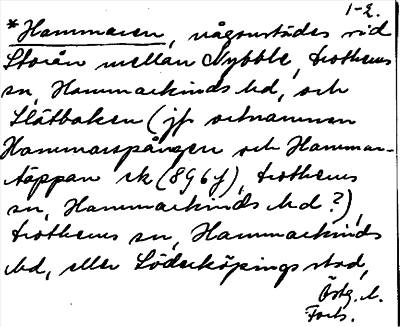 1-2.
*Hammaren, någonstädes vid
Storån mellan Nybble, Drothems
sn, Hammarkinds hd, och
Slätbaken (jfr ortnamnen
Hammarspången och Hammar-
täppan rk (8G6j), Drothems
sn, Hammarkinds hd?),
Drothems sn, Hammarkinds
hd, eller Söderköpings stad,
Östg. l.
Forts.